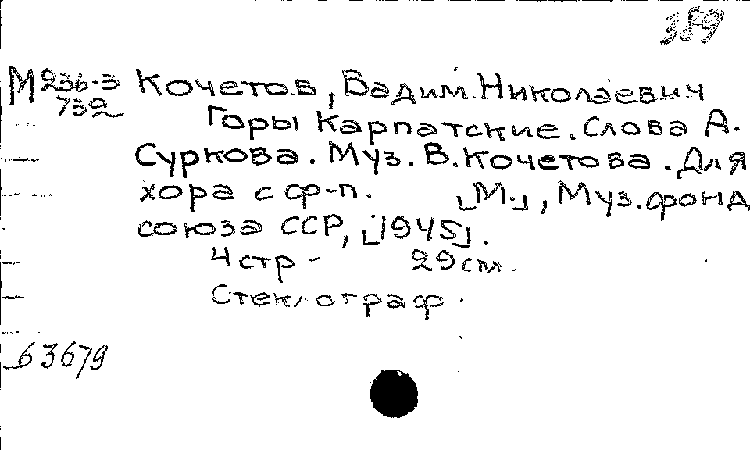 389
М 236-3 Кочетов, Вадим Николаевич
732
Горы Карпатские. Слова А.
Суркова. Муз. В. Кочетова. Для
хора с ф-п. [М.], Муз. фонд
союза ССР, [1945].
4 стр - 29 см.
Стеклограф.
63679